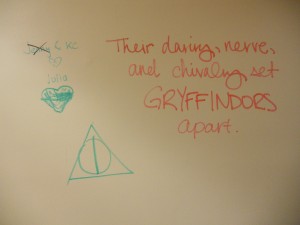 & KC
Julia
Their daring, nerve,
and chivalry set
GRYFFINDORS
apart.